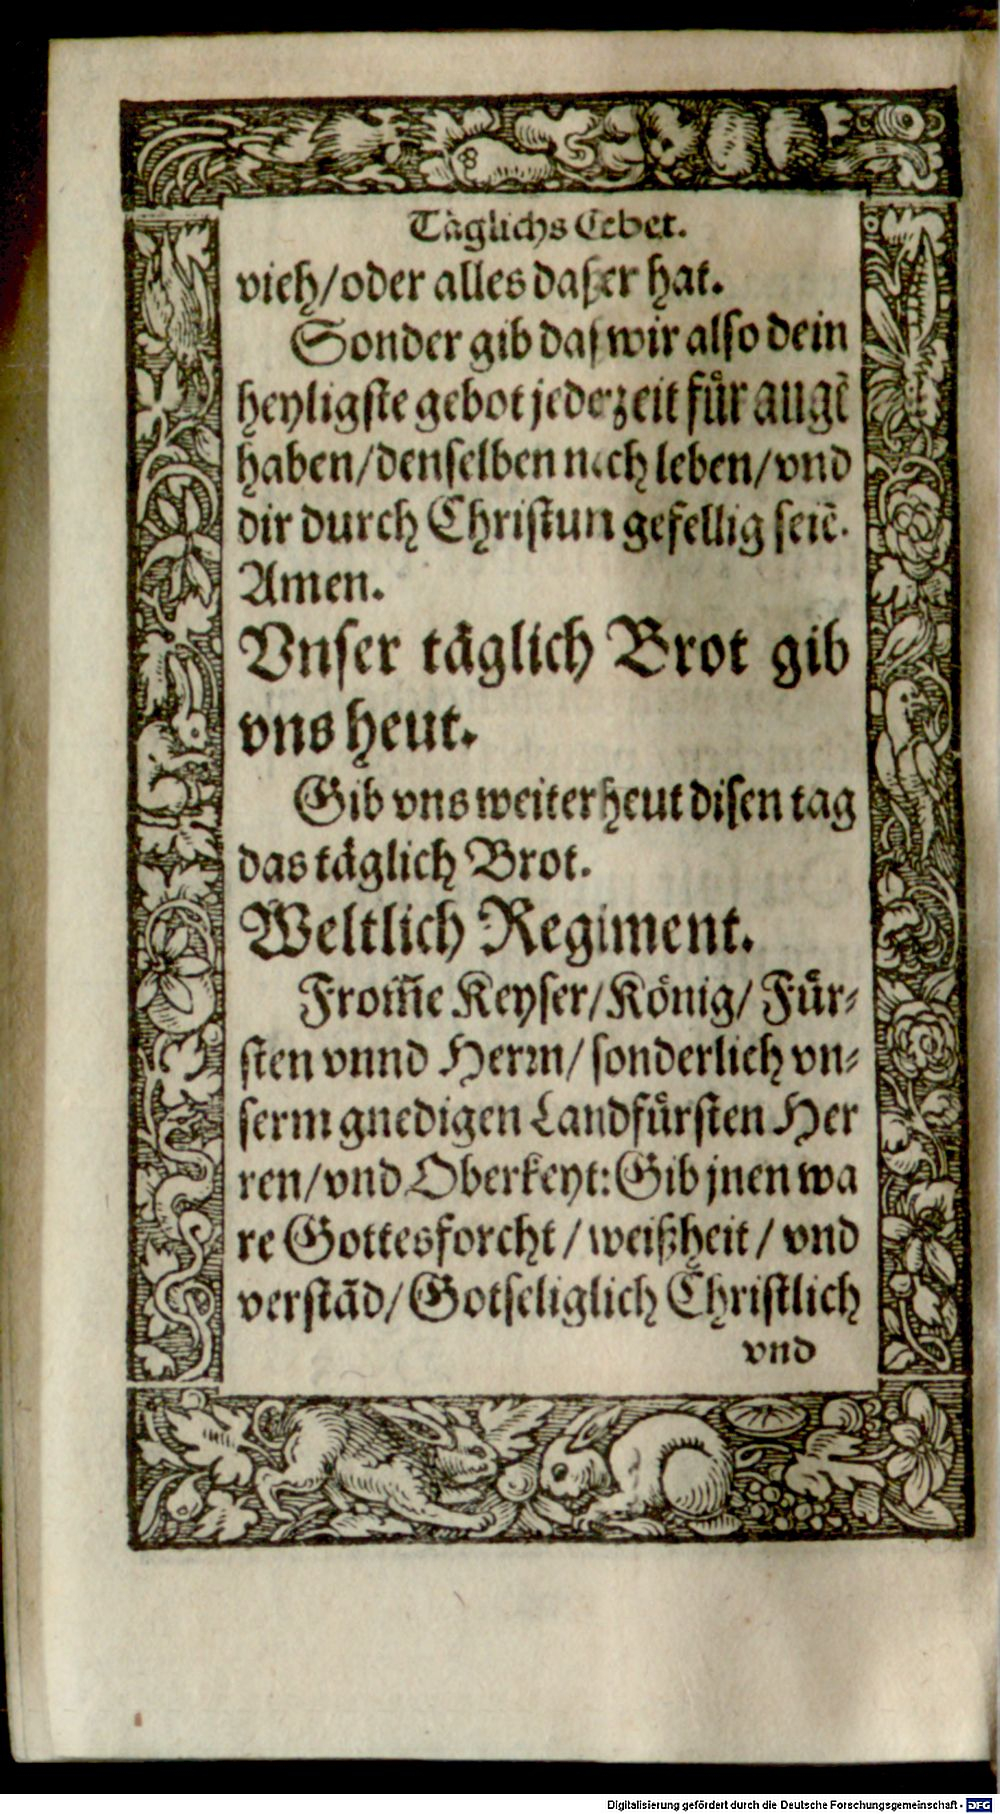 Täglichs Gebet.
vieh/oder alles daß er hat.
Sonder gib daß wir also dein
heyligste gebot jederzeit fuͤr augẽ
haben/denselben nach leben/vnd
dir durch Christum gefellig seiẽ.
Amen.
Vnser täglich Brot gib
vns heut.
Gib vns weiter heut disen tag
das täglich Brot.
Weltlich Regiment.
From̃e Keyser/König/ Fuͤr⸗
sten vnnd Herrn/ sonderlich vn⸗
serm gnedigen Landfuͤrsten Her
ren/vnd Oberkeyt: Gib jnen wa
re Gottesforcht/weißheit/vnd
verstãd/Gotseliglich Christlich
vnd
Digitalisierung gefördert durch die Deutsche Forschungsgemeinschaft - DFG